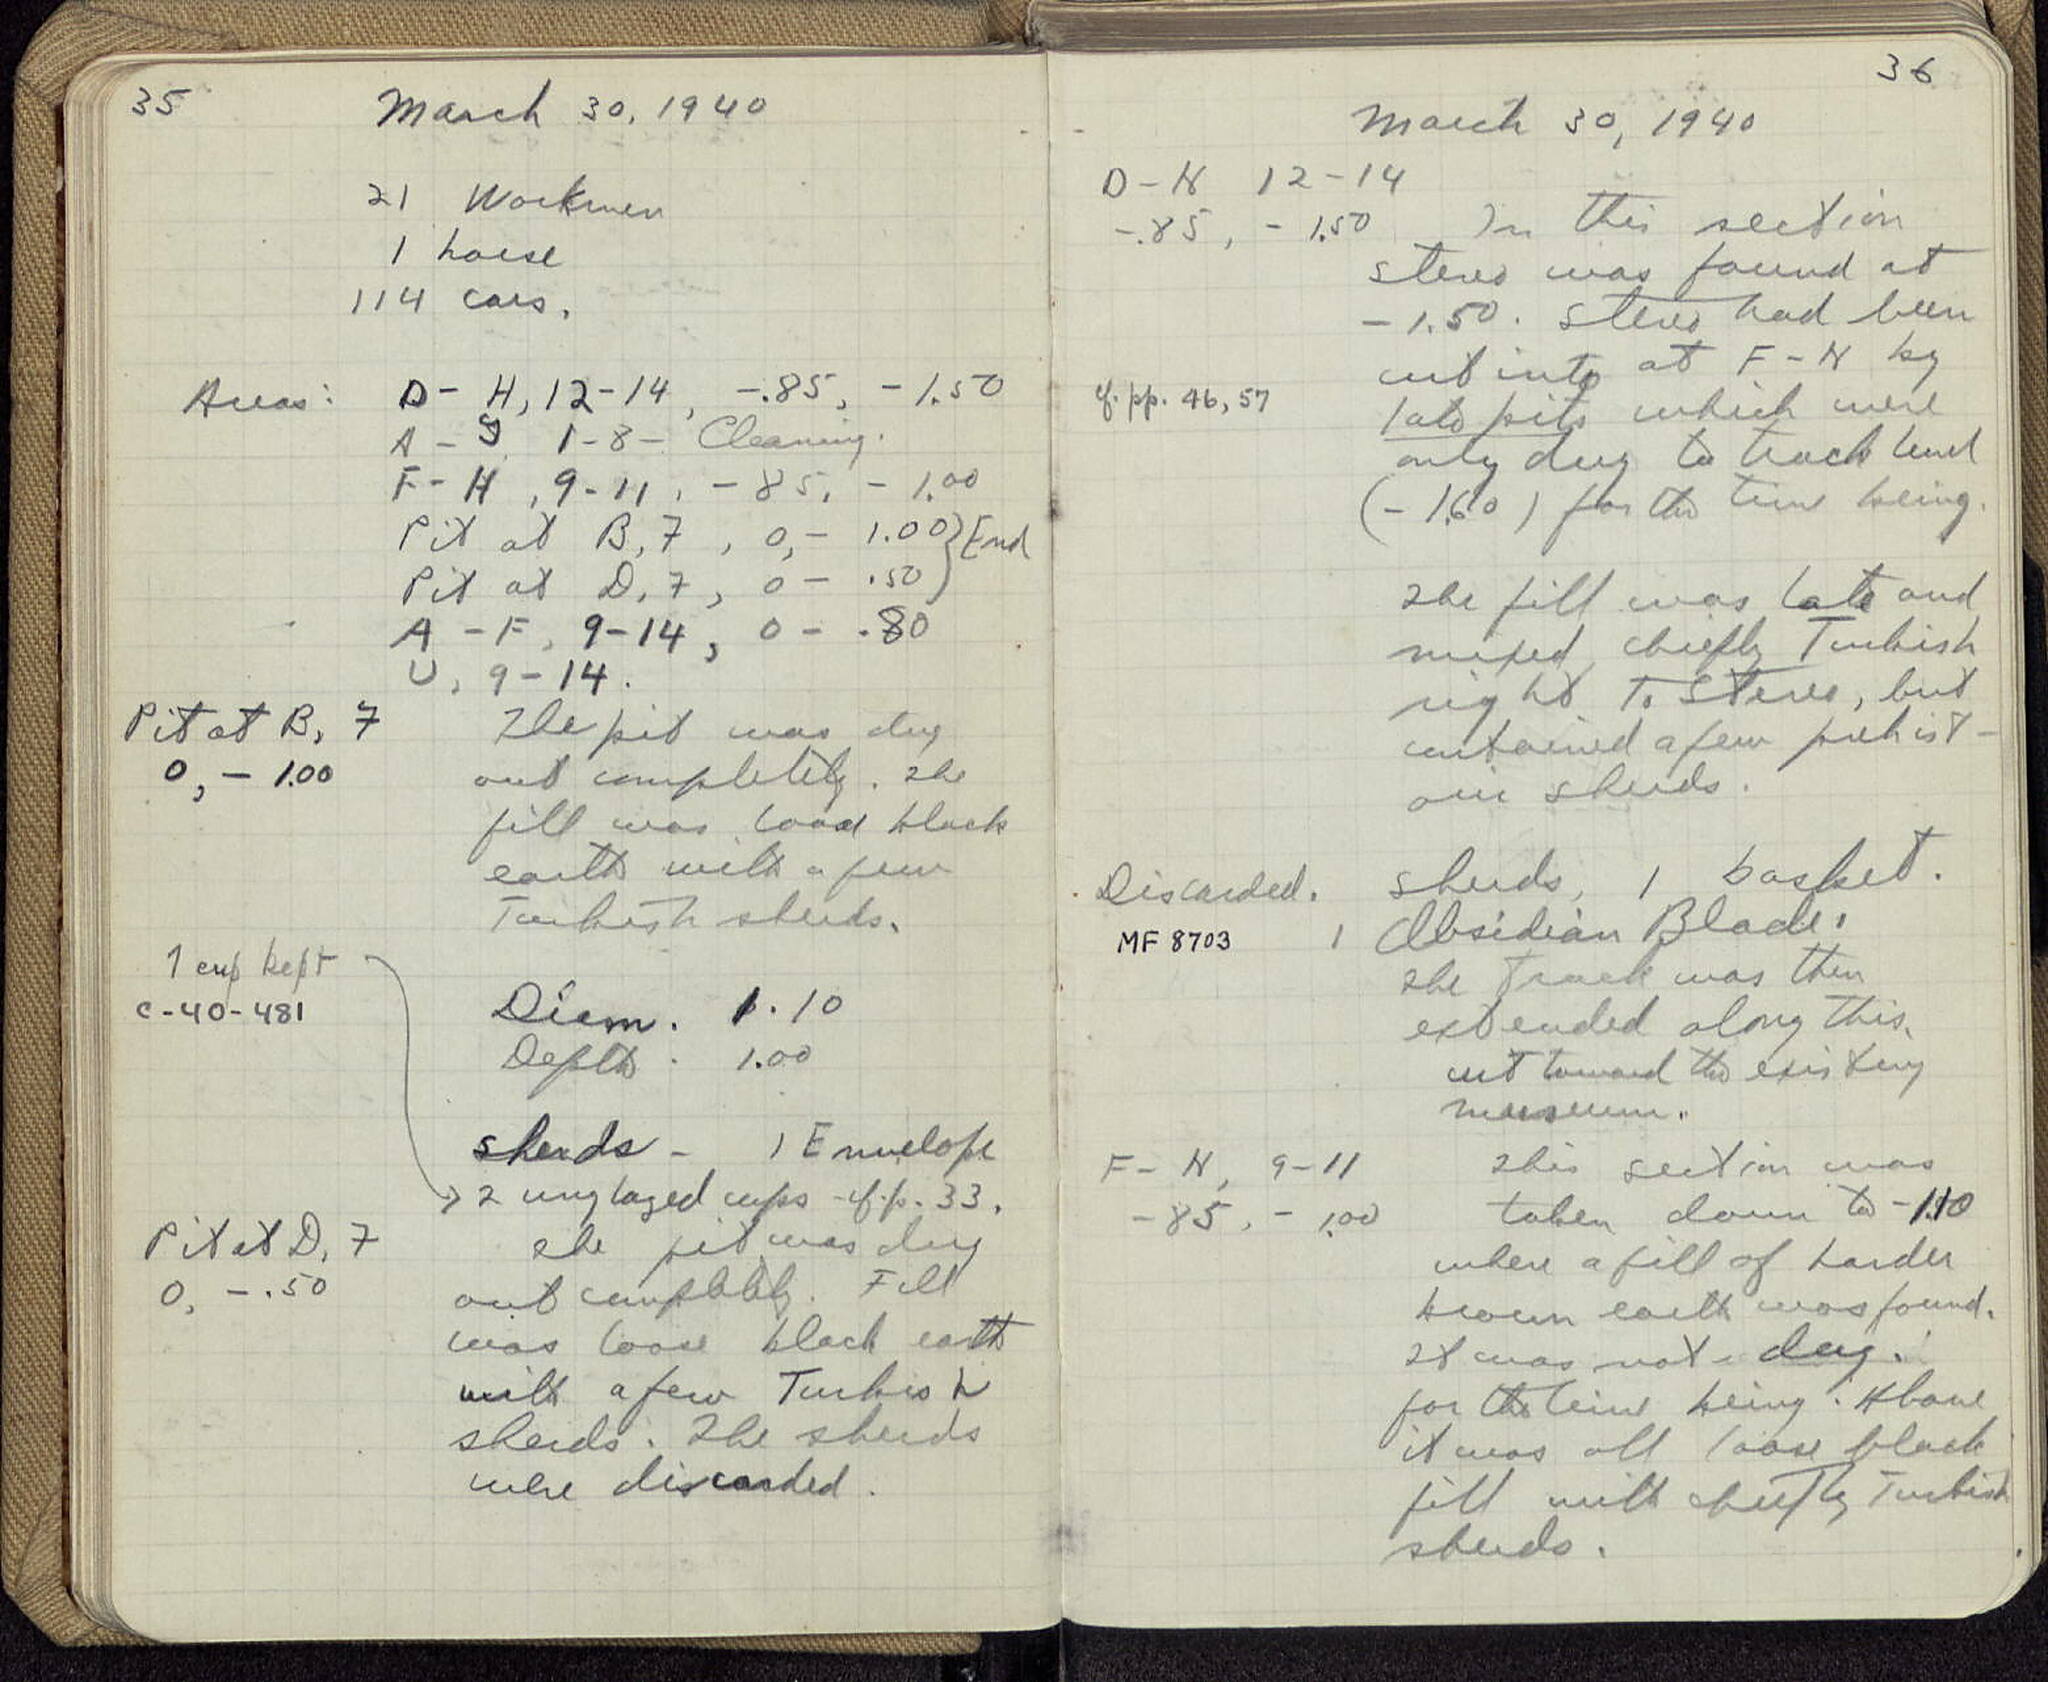 35
March 30, 1940
21 Workmen
1 horse
114 cars.
Areas: D - H, 12-14, -.85, - 1.50
A - G 1-8 - Cleaning.
F - H, 9-11, -.85, - 1.00
Pit at B, 7, 0, - 1.00 } End
Pit at D, 7, 0 - .50
A - F, 9-14, 0 - .80
U, 9-14.
Pit at B, 7 The pit was dug
0, - 1.00 out completely. The
fill was loose black
earth with a few
Turkish sherds.
1 cup kept
C-40-481
Diam. 1.10
Depth. 1.00
sherds - 1 Envelope
→ 2 unglazed cups cf. p. 33.
Pit at D, 7 The pit was dug
0, - .50 out completely. Fill
was loose black earth
with a few Turkish
sherds. The sherds
were discarded.
36
March 30, 1940
D - H 12-14
-.85, - 1.50 In this section
stereo was found at
- 1.50. Stereo had been
cut into at F - H by
cf. pp. 46, 57 late pits which were
only dug to track level
(- 1.60) for the time being.
The fill was late and
mixed, chiefly Turkish
right to stereo, but
contained a few prehist-
oric sherds.
Discarded. sherds, 1 basket.
MF 8703 1 Obsidian Blade.
The track was then
extended along this
cut toward the existing
museum.
F - H, 9-11 This section was
-.85, - 1.00 taken down to -1.10
where a fill of harder
brown earth was found.
It was not dug.
for the time being. Above
it was all loose black
fill with chiefly Turkish
sherds.